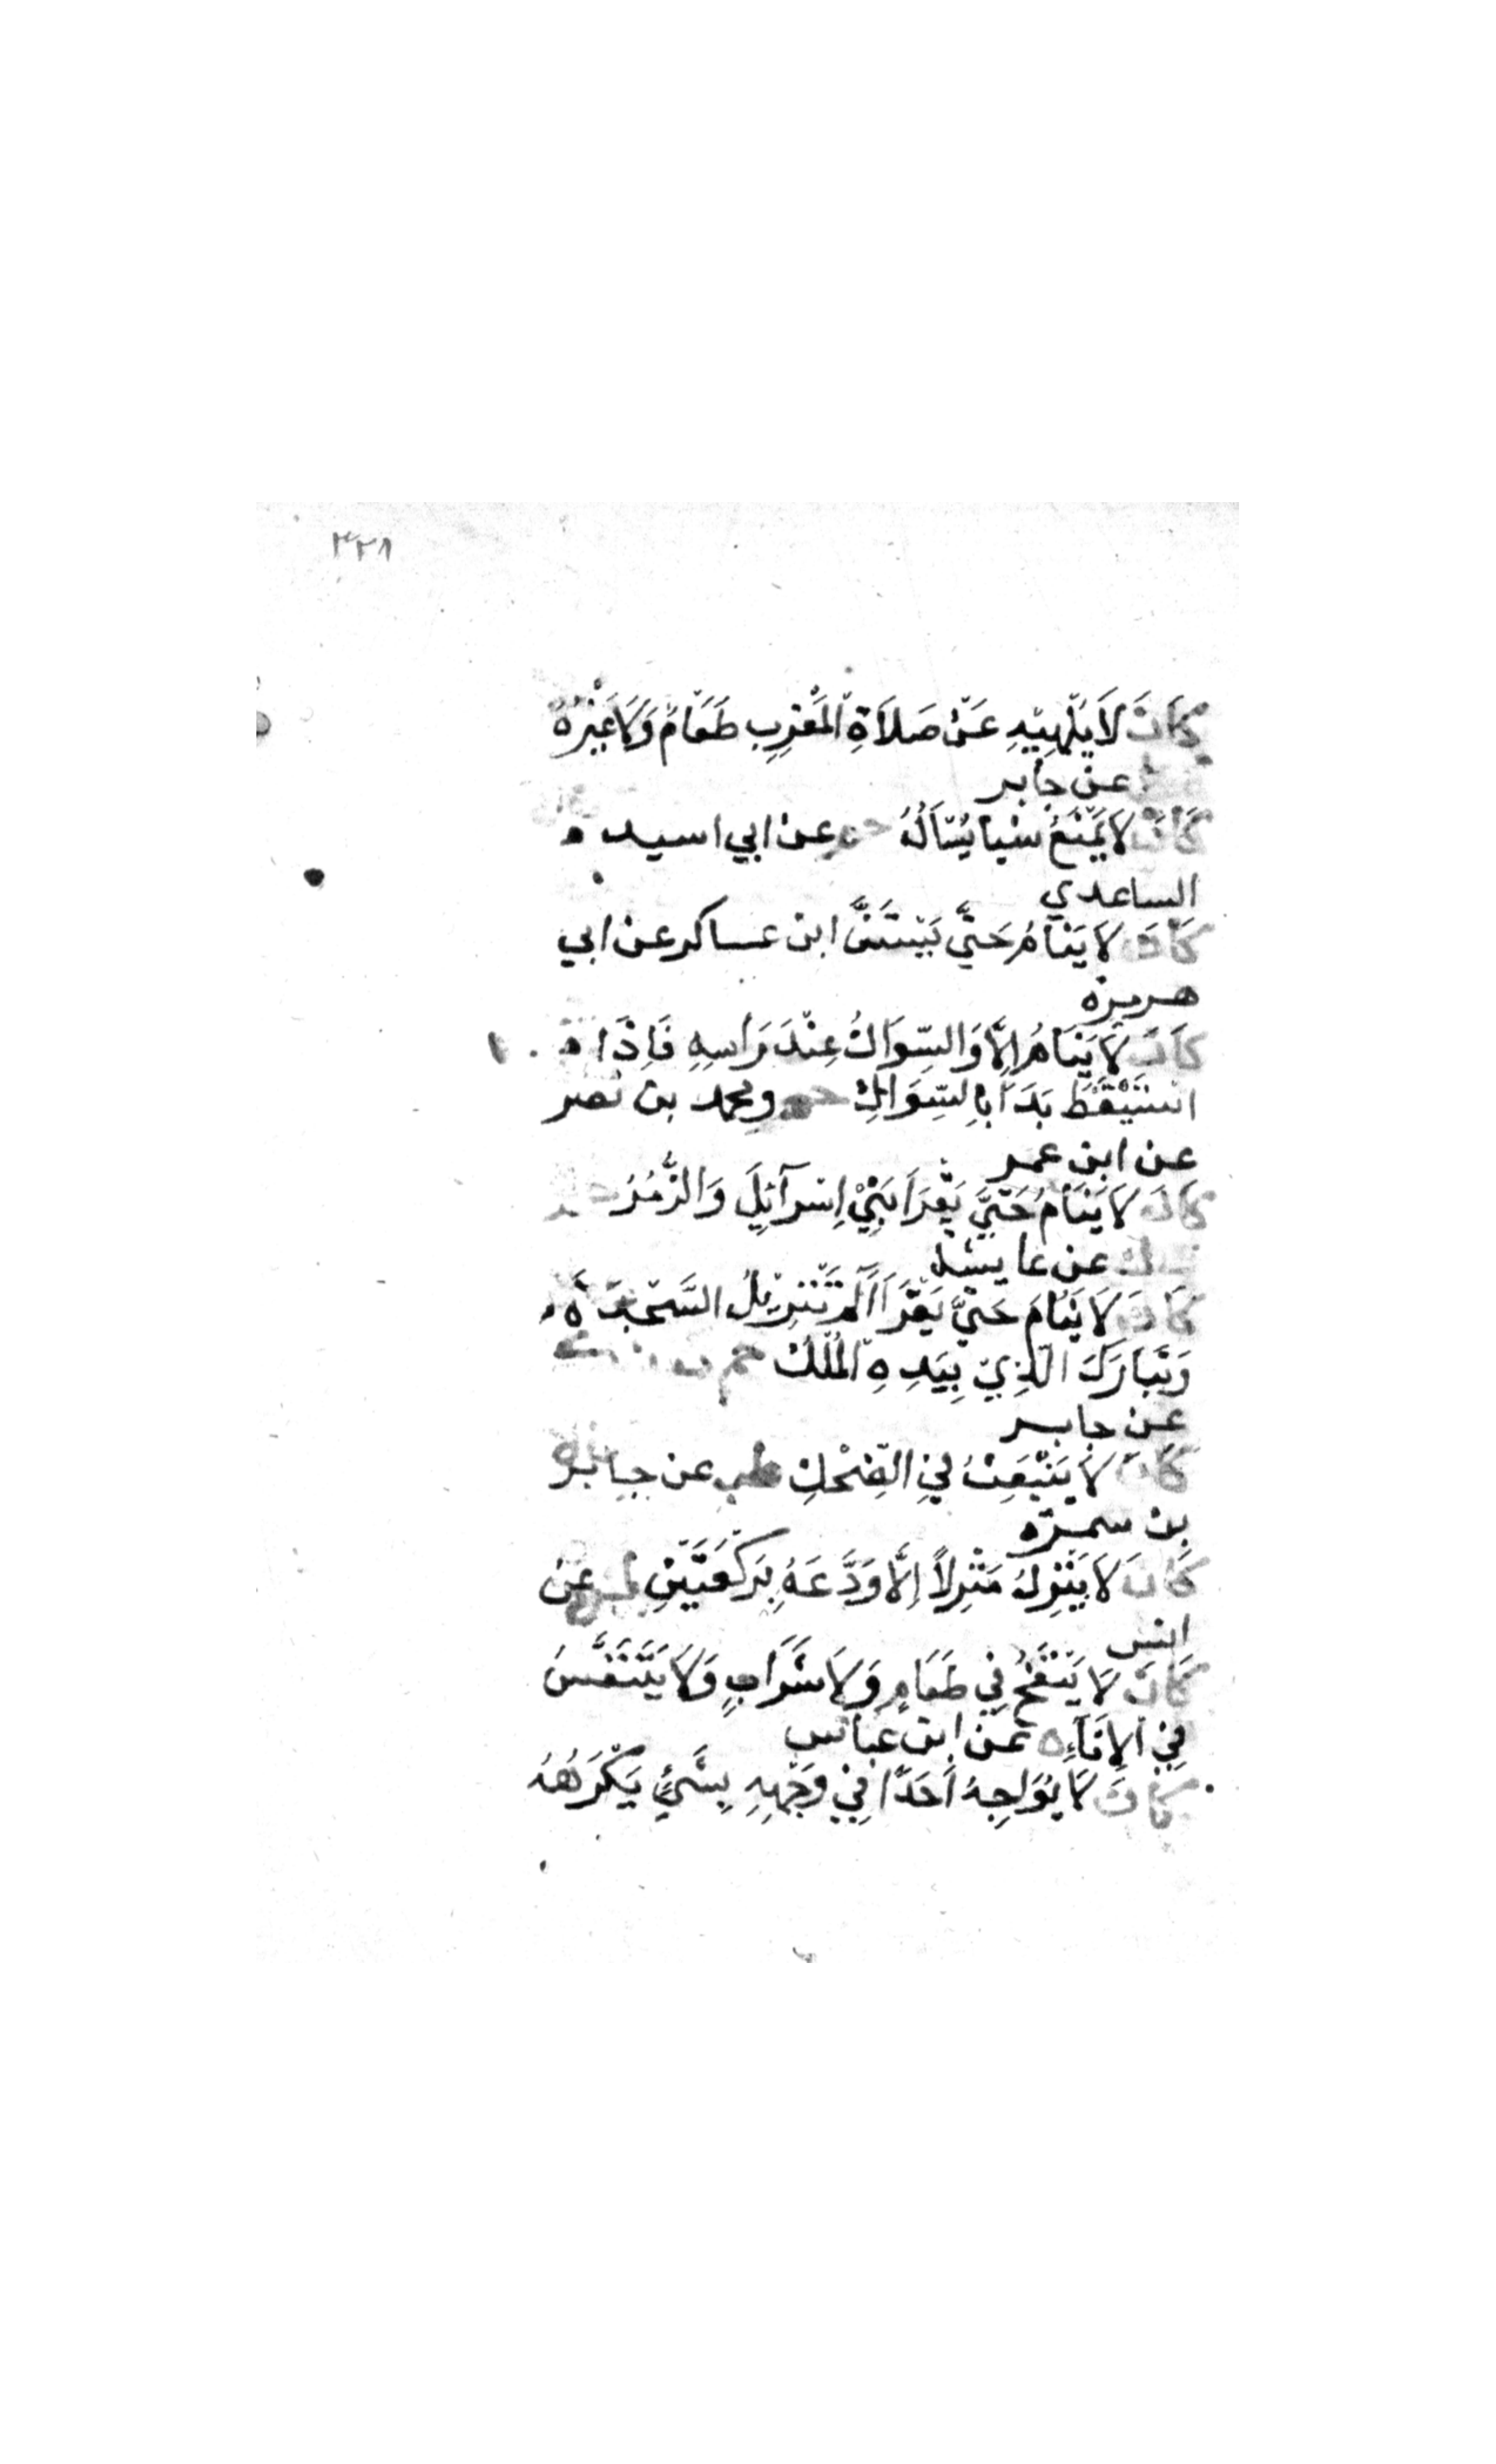 ٣٣٨
كَانَ لَا يُلْهِيْهِ عَنْ صَلَاةِ الْمَغْرِبِ طَعَامٌ وَلَا غَيْرُهُ
عن جابر
كَانَ لَا يَمْنَعُ شيا يُسْأَلُهُ حم عن ابي اسيد
الساعدي
كَانَ لَا يَنَامُ حَتَّى يَسْتَنَّ ابن عساكر عن ابي
هريره
كَانَ لَا يَنَامُ إِلَّا وَالسِّوَاكُ عِنْدَ رَاسِهِ فَاِذَا
اسْتَيْقَظَ بَدَأَ بِالسِّوَاكِ حم ومحمد بن نصر
عن ابن عمر
كَانَ لَا يَنَامُ حَتَّى يَقْرَأَ بَنِيْ اِسْرَآئِلَ وَالزُّمَرَ
ك عن عايشه
كَانَ لَا يَنَامُ حَتَّى يَقْرَأَ الَمَ تَنْزِيْلُ السَّجْدَةَ
وَتَبَارَكَ الَّذِيْ بِيَدِهِ الْمُلْكُ حم
عن جابر
كَانَ لَا يَنْبَعِثُ فِي الضِّحْكِ طب عن جابر
بن سمره
كَانَ لَا يَنْزِلُ مَنْزِلاً إِلَّا وَدَّعَهُ بِرَكْعَتَيْنِ عن
انس
كَانَ لَا يَنْفَخُ فِي طَعَامٍ وَلَا شَرَابٍ وَلَا يَتَنَفَّسُ
فِي الاِنَآءِ ه عن ابن عباس
كَانَ لَا يُوَاجِهُ اَحَدًا فِيْ وَجْهِهِ بِشَيْءٍ يَكْرَهُهُ